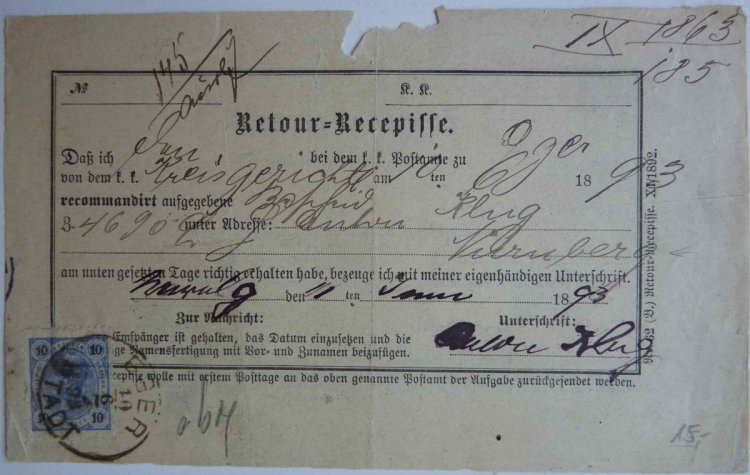 IX 1863
185
145
№ K. K.
Retour=Recepisse.
Daß ich den bei dem k. k. Postamte zu Eger
von dem k. k. Kreisgericht am 10 ten 1893
recommandirt aufgegebene
Z. 4690 unter Adresse: Anton Klug
Nürnberg
am unten gesetzten Tage richtig erhalten habe, bezeuge ich mit meiner eigenhändigen Unterschrift.
den 11 ten 1893
Zur Nachricht: Unterschrift:
Empfänger ist gehalten, das Datum einzusetzen und die
ge Namensfertigung mit Vor- und Zunamen beizufügen. Anton Klug
cepisse wolle mit erstem Posttage an das oben genannte Postamt der Aufgabe zurückgesendet werden.
Nr. 32 (B.) Retour-Recepisse. XI/1892.
10 10
10 10
EGER
STADT
15,-